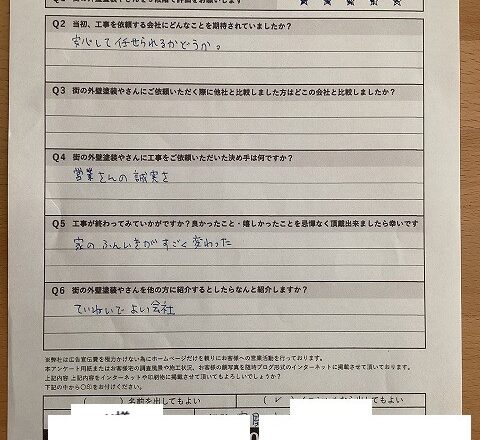 Q2 当初、工事を依頼する会社にどんなことを期待されていましたか？
安心して任せられるかどうか。
Q3 街の外壁塗装やさんにご依頼いただく際に他社と比較しました方はどこの会社と比較しましたか？
Q4 街の外壁塗装やさんに工事をご依頼いただいた決め手は何ですか？
営業さんの誠実さ
Q5 工事が終わってみていかがですか？良かったこと・嬉しかったことを忌憚なく頂戴出来ましたら幸いです
家のふんいきがすごく変わった
Q6 街の外壁塗装やさんを他の方に紹介するとしたらなんと紹介しますか？
ていねいでよい会社
※弊社は広告宣伝費を極力かけない為にホームページだけを頼りにお客様への営業活動を行っております。
本アンケート用紙またはお客様宅の調査風景や施工状況、お客様の顔写真を随時ブログ形式のインターネットに掲載させて頂いております。
上記内容 上記内容をインターネットや印刷物に掲載させて頂いてもよろしいでしょうか？
下記の中から〇印をお付けください。
）名前を出してもよい